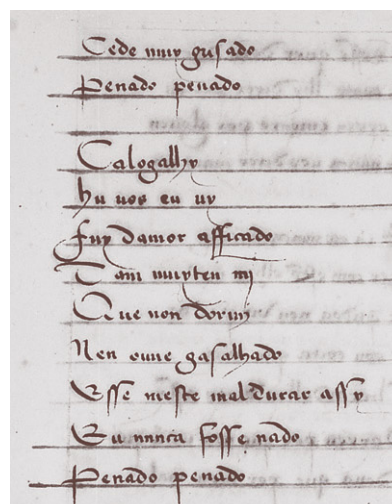 Cede muy guisado
Penado penado
Ca logalhy
hu uos eu uy
fuy damor afficado
Tam muyten mj
Que non dormj
Nen ouue gasalhado
Esse meste mal durar assy
Eu nunca fosse nado
Penado penado